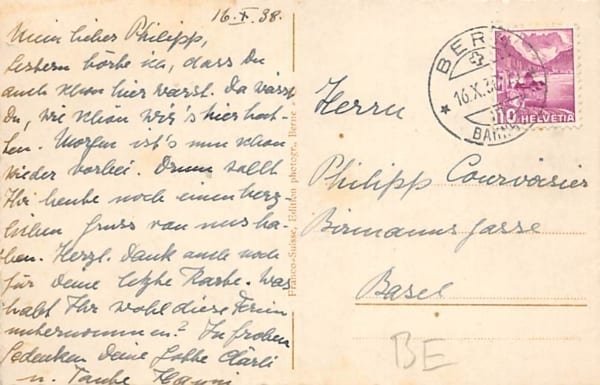 16.X.38.
Mein lieber Philipp,
gestern hörte ich, dass Du
auch schon hier warst. Da weisst
Du, wie schön wir's hier hat-
ten. Morgen ist's nun schon
wieder vorbei. Drum sollt
Ihr heute noch einen herz-
lichen Gruss von uns ha-
ben. Herzl. Dank auch noch
für Deine letzte Karte. Was
habt Ihr wohl diese Ferien
unternommen? In frohem
Gedenken Deine Gotte Clärli
u. Tante Hanni
Franco-Suisse, Edition photogr., Berne
BERN
16.X.38
BAHN
10 HELVETIA
Herrn
Philipp Courvoisier
Birmannsgasse
Basel
BE